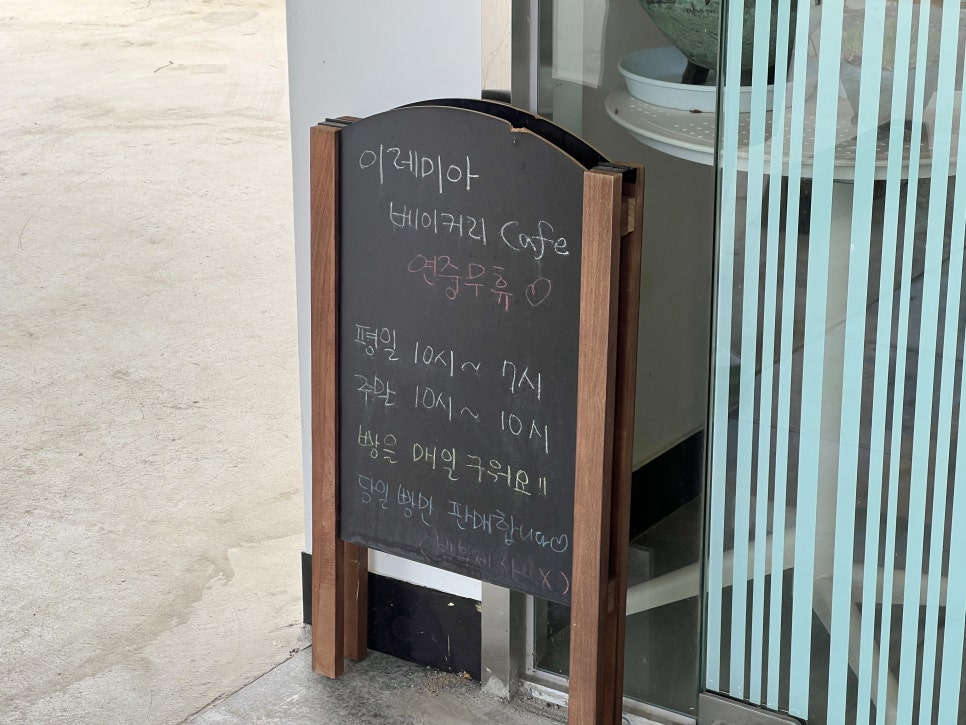 이레미아
베이커리 Cafe
연중무휴♡
평일 10시~ 7시
주말 10시~ 10시
빵을 매일 구워요!!
당일 빵만 판매합니다♡
(방부제 X)